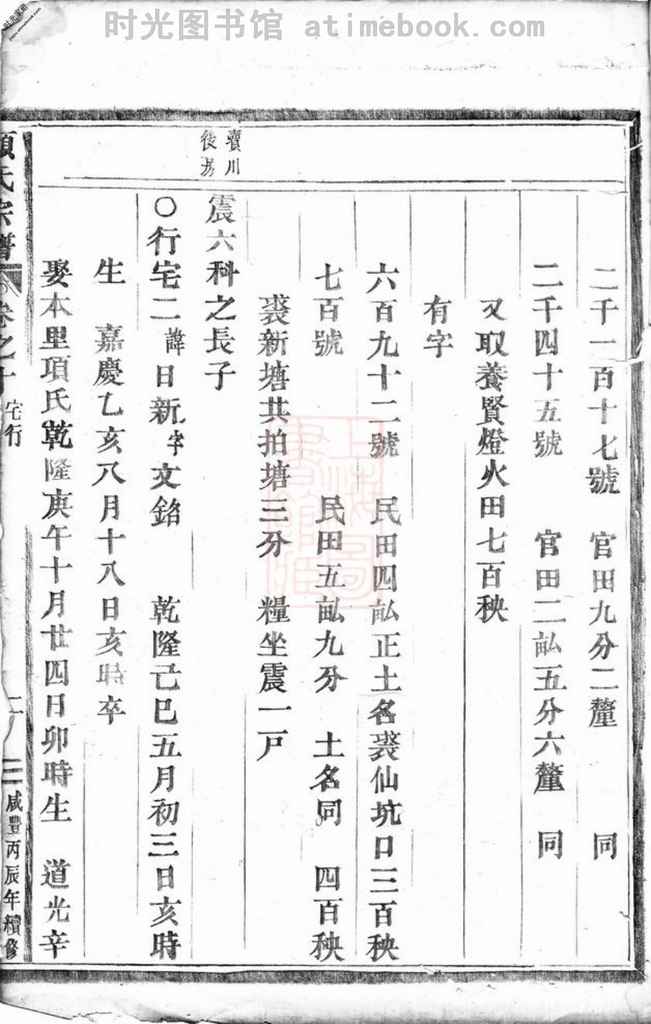 时光图书馆 atimebook.com
二千一百十七號 官田九分二釐 同
二千四十五號 官田二畆五分六釐 同
又取養賢燈火田七百秧
有字
六百九十二號 民田四畆正土名裘仙坑口三百秧
七百號 民田五畆九分 土名同 四百秧
裘新塘共拍塘三分 糧坐震一戸
後易
震六科之長子
○行宅二諱日新字文銘 乾隆己巳五月初三日亥時
生 嘉慶乙亥八月十八日亥時卒
娶本里項氏乾隆庚午十月廿四日卯時生 道光辛
項氏宗譜 卷之十 宅行 咸豐丙辰年續修